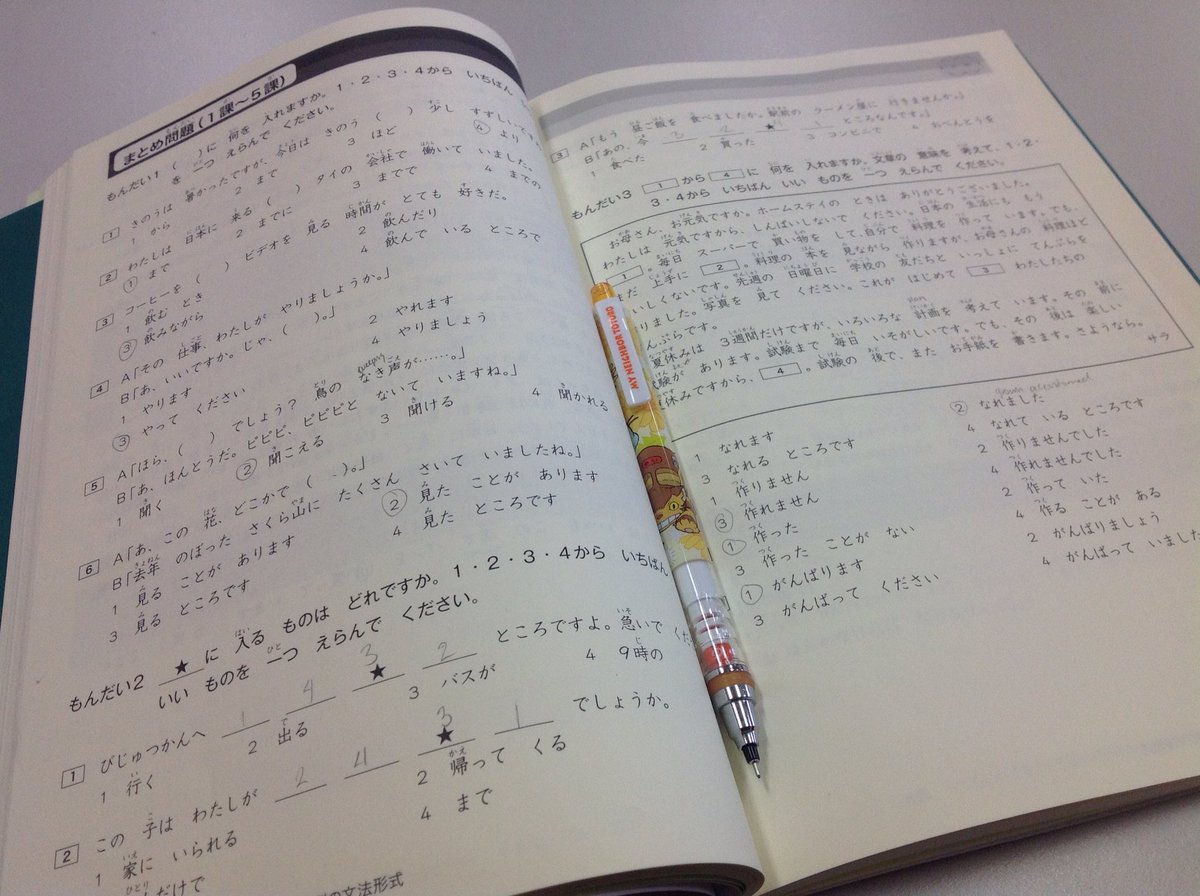 まとめ問題(1課〜5課)
もんだい1 ( )に 何を 入れますか。1・2・3・4から いちばん
を 一つ えらんで ください。
1 きのうは 暑かったですが、今日は きのう ( ) 少し すずしいです
1 から 2 まで 3 ほど ④ より
2 わたしは 日本に 来る ( ) タイの 会社で 働いて いました。
① まで 2 までに 3 までで 4 までの
3 コーヒーを ( ) ビデオを 見る 時間が とても 好きだ。
1 飲む とき 2 飲んだり
③ 飲みながら 4 飲んで いる ところで
4 A「その 仕事、わたしが やりましょうか。」
B「あ、いいですか。じゃ、( )。」
1 やります 2 やれます
③ やって ください 4 やりましょう
5 A「ほら、( ) でしょう? 鳥の なき声が……。」
B「あ、ほんとうだ。ピピピ、ピピピと ないて いますね。」
1 聞く ② 聞こえる 3 聞ける 4 聞かれる
6 A「あ、この 花、どこかで ( )。」
B「去年 のぼった さくら山に たくさん さいて いましたね。」
1 見る ことが あります ② 見た ことが あります
3 見る ところです 4 見た ところです
もんだい2 ★ に 入る ものは どれですか。1・2・3・4から いちばん
いい ものを 一つ えらんで ください。
1 びじゅつかんへ 1 4 3 ★ 2 ところですよ。急いで くだ
1 行く 2 出る 3 バスが 4 9時の
2 この 子は わたしが 2 4 3 ★ 1 でしょうか。
1 家に いられる 2 帰って くる
だけで 4 まで
の文法形式
3 A「もう 昼ご飯を 食べましたか。駅前の ラーメン屋に 行きませんか。」
B「あの、今 3 2 ★ ところなんです。」
1 食べた 2 買った 3 コンビニで 4 おべんとうを
もんだい3 1 から 4 に 何を 入れますか。文章の 意味を 考えて、1・2・
3・4から いちばん いい ものを 一つ えらんで ください。
お母さん、お元気ですか。ホームステイの ときは ありがとうございました。
わたしは 元気ですから、しんぱいしないで ください。日本の 生活にも もう
1 。毎日 スーパーで 買い物を して、自分で 料理を 作って います。でも、
まだ 上手に 2 。料理の 本を 見ながら 作りますが、お母さんの 料理ほど
いしくないです。先週の 日曜日に 学校の 友だちと いっしょに てんぷらを
りました。写真を 見て ください。これが はじめて 3 わたしたちの
んぷらです。
plan
夏休みは 3週間だけですが、いろいろな 計画を 考えて います。その 前に
試験が あります。試験まで 毎日 いそがしいです。でも、その 後は 楽しい
夏休みですから、 4 。試験の 後で、また お手紙を 書きます。さようなら。
サラ
1 なれます ② なれました
3 なれる ところです 4 なれて いる ところです
1 作りません 2 作りませんでした
③ 作れません 4 作れませんでした
① 作った 2 作って いた
3 作った ことが ない 4 作る ことが ある
① がんばります 2 がんばりましょう
3 がんばって ください 4 がんばって いました
MY NEIGHBOR TOTORO